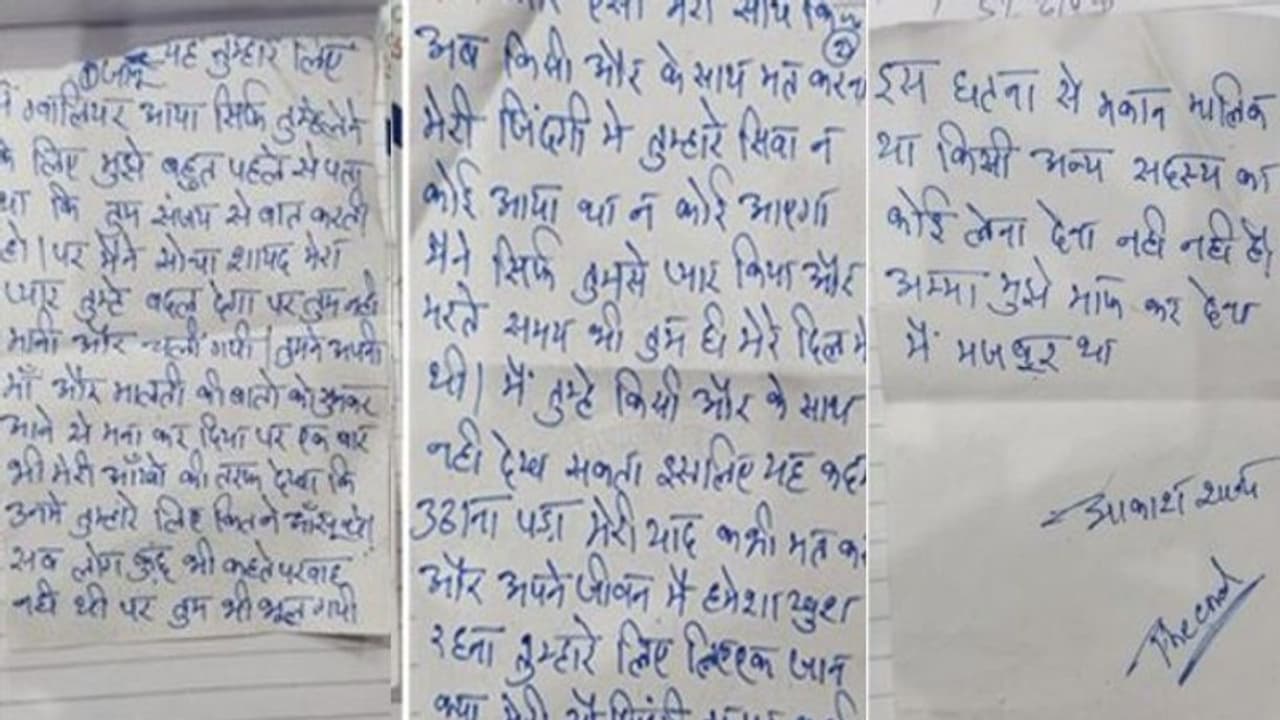 यह तुम्हारे लिए
ग्वालियर आया सिर्फ तुम्हे लेने
के लिए मुझे बहुत पहले से पता
था कि तुम संजय से बात करती
हो। पर मैने सोचा शायद मेरा
प्यार तुम्हे बदल देगा पर तुम नही
मानी और चली गयी। तुमने अपनी
माँ और मालती की बातो को सुनकर
आने से मना कर दिया पर एक बार
भी मेरी आँखो की तरफ देखा कि
उनमे तुम्हारे लिए कितने आँसू थे।
सब लोग कुछ भी कहते परवाह
नही थी पर तुम भी भूल गयी
मेरा साथ
अब किसी और के साथ मत करना
मेरी जिंदगी मे तुम्हारे सिवा न
कोई आया था न कोई आएगा
मैने सिर्फ तुमसे प्यार किया और
मरते समय भी तुम ही मेरे दिल मे
थी। मैं तुम्हे किसी और के साथ
नही देख सकता इसलिए यह कदम
उठाना पड़ा मेरी याद कभी मत
और अपने जीवन मै हमेशा खुश
रहना तुम्हारे लिए जान
क्या मेरी
इस घटना से मकान मालिक
या किसी अन्य सदस्य का
कोई लेना देना नही नही है।
अम्मा मुझे माफ कर देना
मैं मजबूर था
आकाश
The end